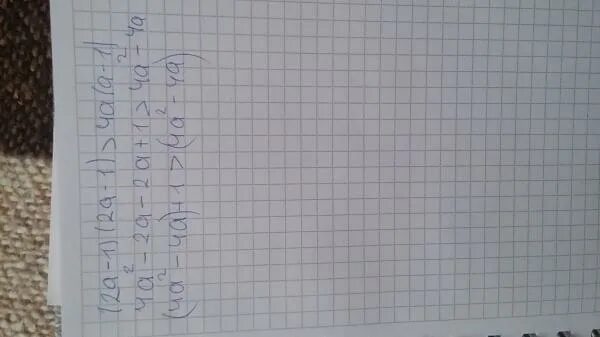 (2a-1)(2a-1)>4a(a-1)
4a²-2a-2a+1>4a²-4a
(4a²-4a)+1>(4a²-4a)